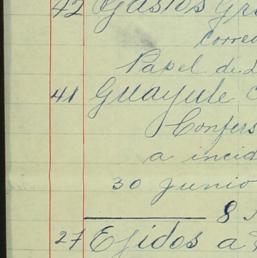 42 Gastos Gra
Correo
Papel de
41 Guayule C
Confers
a incid
30 junio
8
27 Ejidos a